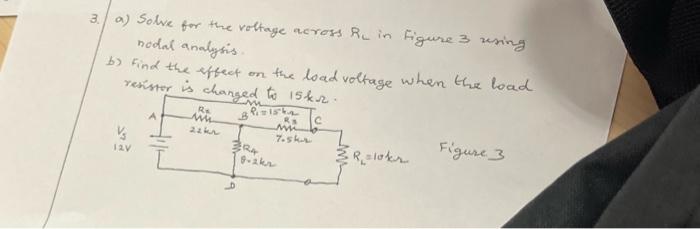 3. a) Solve for the voltage across RL in Figure 3 using
nodal analysis.
b) Find the effect on the load voltage when the load
resistor is changed to 15kΩ.
R1=15kΩ
A
R2
B
R3
C
22kΩ
7.5kΩ
Vs
12V
R4
8.2kΩ
RL=10kΩ
Figure 3
D